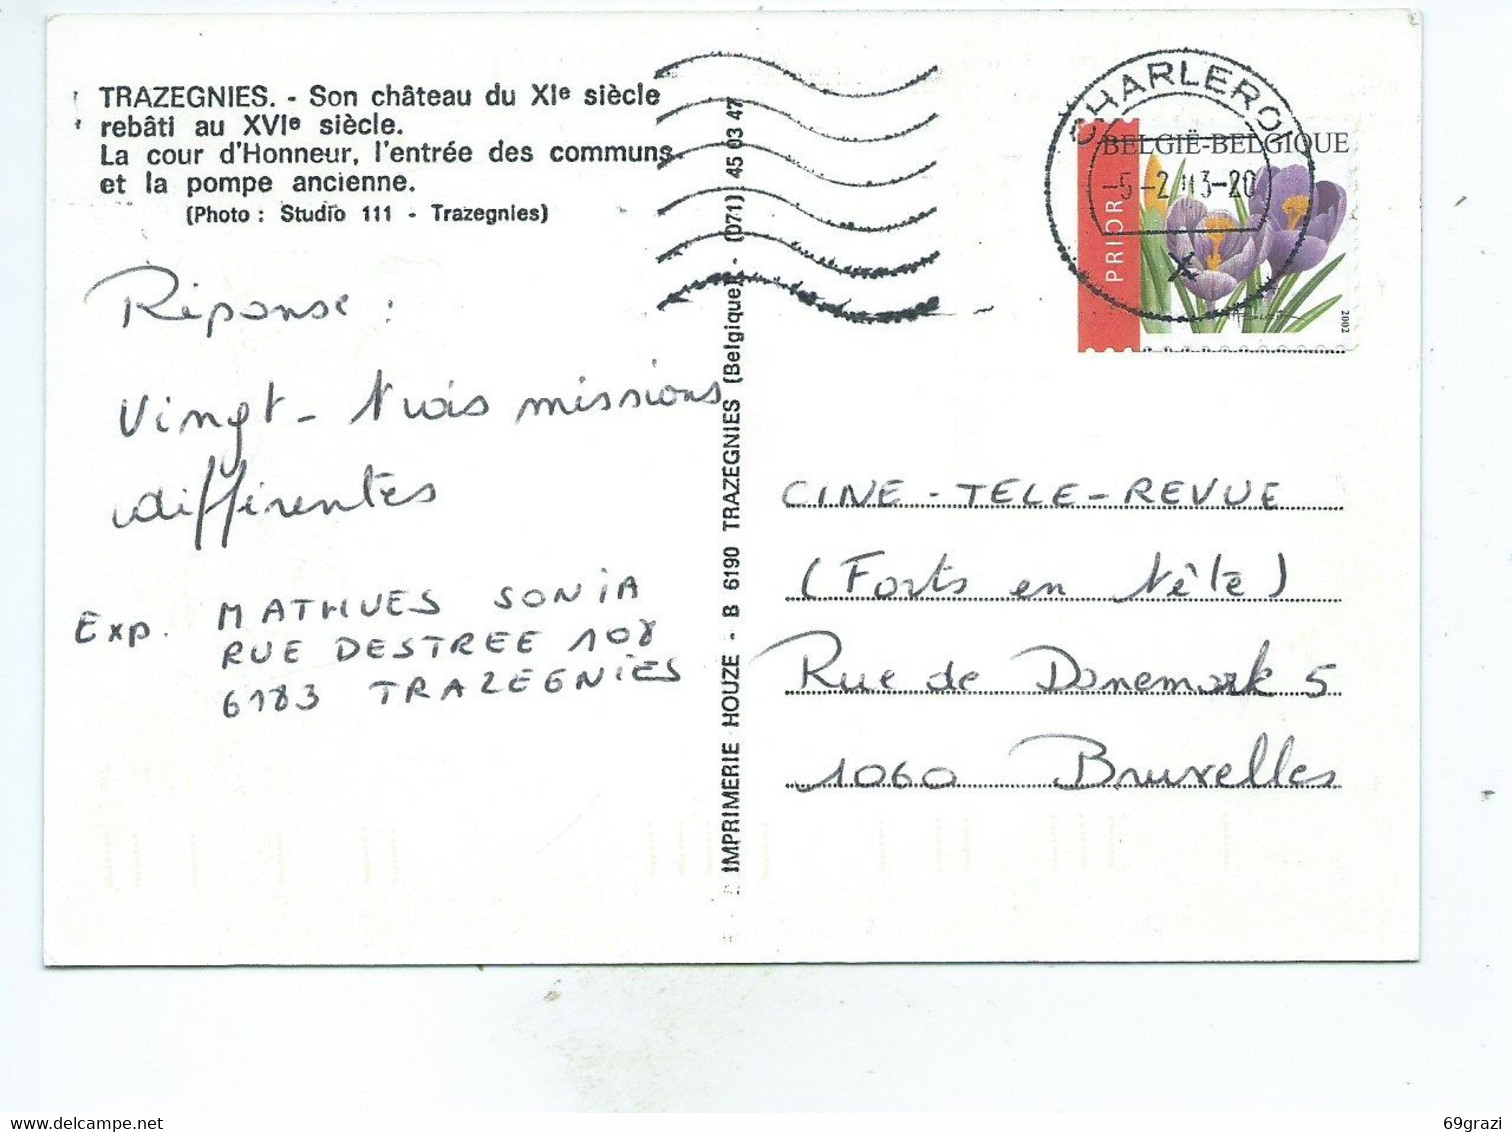 TRAZEGNIES. - Son château du XIe siècle
rebâti au XVIe siècle.
La cour d'Honneur, l'entrée des communs
et la pompe ancienne.
(Photo : Studio 111 - Trazegnies)
Réponse :
Vingt-trois missions
différentes
Exp. MATHUES SONIA
RUE DESTREE 108
6183 TRAZEGNIES
IMPRIMERIE HOUZE - B 6190 TRAZEGNIES (Belgique) - (071) 45 03 47
CHARLEROI
-5-2 03-20
BELGIË-BELGIQUE
PRIOR
2002
CINE-TELE-REVUE
(Forts en tête)
Rue de Danemark 5
1060 Bruxelles
delcampe.net
69grazi